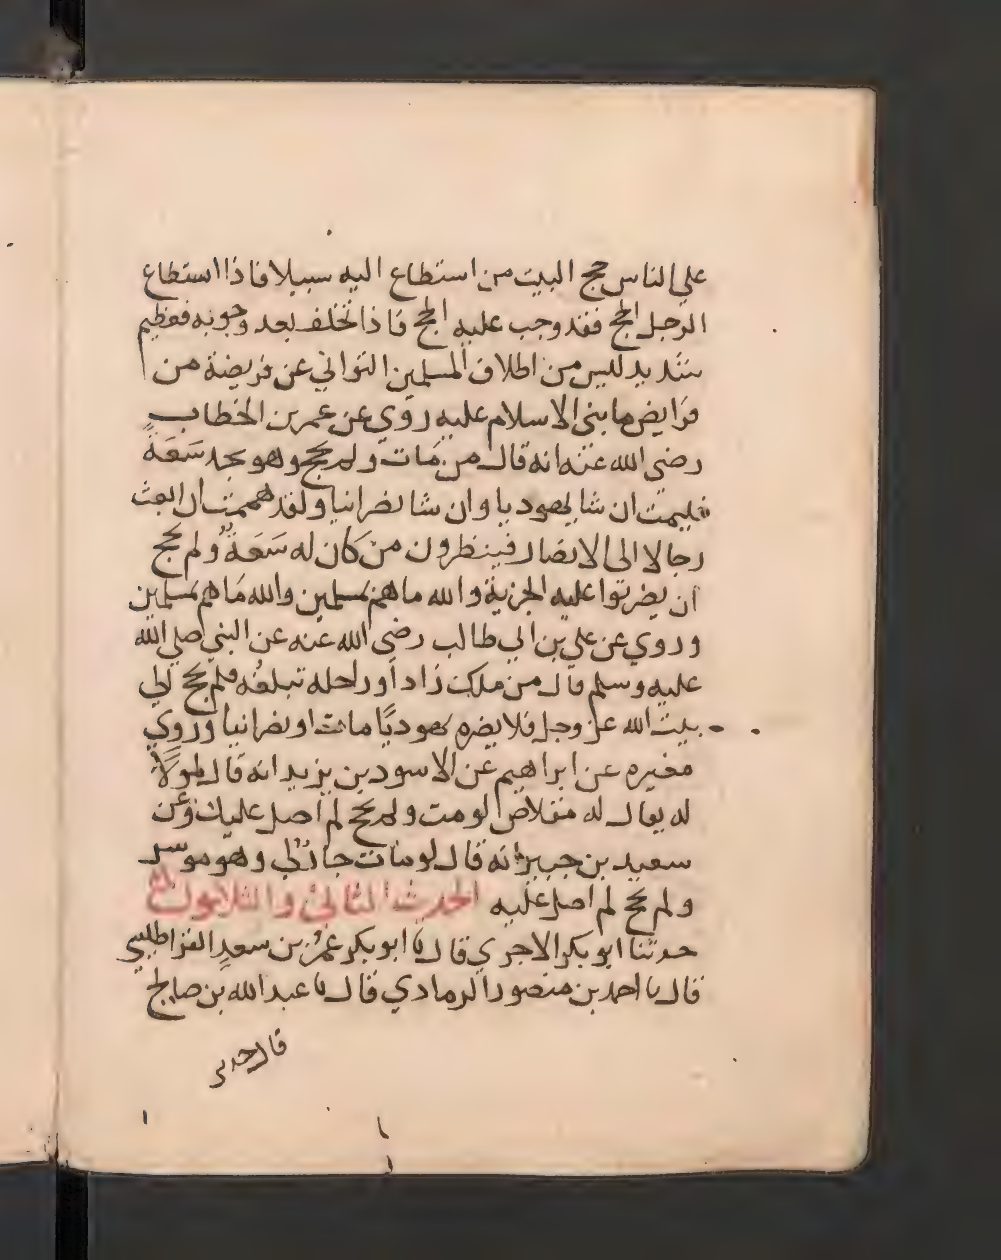 علي الناس حج البيت من استطاع اليه سبيلا فاذا استطاع
الرجل الحج فقد وجب عليه الحج فاذا تخلف بعد وجوبه فعظيم
شديد ليس من اطلاق المسلمين التواني عن فريضة من
فرايض ما بني الاسلام عليه روي عن عمر بن الخطاب
رضي الله عنه انه قال من مات ولم يحج وهو يجد سَعَةً
فليمت ان شا يهوديا وان شا نصرانيا ولقد هممت ان ابعث
رجالا الى الامصار فينظرون من كان له سَعَةً ولم يحج
ان يضربوا عليه الجزية والله ما هم بمسلمين والله ما هم بمسلمين
وروي عن علي بن ابي طالب رضي الله عنه عن النبي صلي الله
عليه وسلم قال من ملك زاد او راحله تبلغه فلم يحج الي
بيت الله عز وجل فلا يضره يهوديًا مات او نصرانيا وروي
مغيره عن ابراهيم عن الاسود بن يزيد انه قال لمولاً
له يقال له مقلاص لو مت ولم يحج لم اصل عليك وعن
سعيد بن جبير انه قال لو مات جار لي وهو موسر
ولم يحج لم اصل عليه الحديث الثاني والثلاثون
حدثنا ابو بكر الاجري قال نا ابو بكر عمر بن سعد القراطيسي
قال نا احمد بن منصور الرمادي قال نا عبد الله بن صالح
قال حدثني